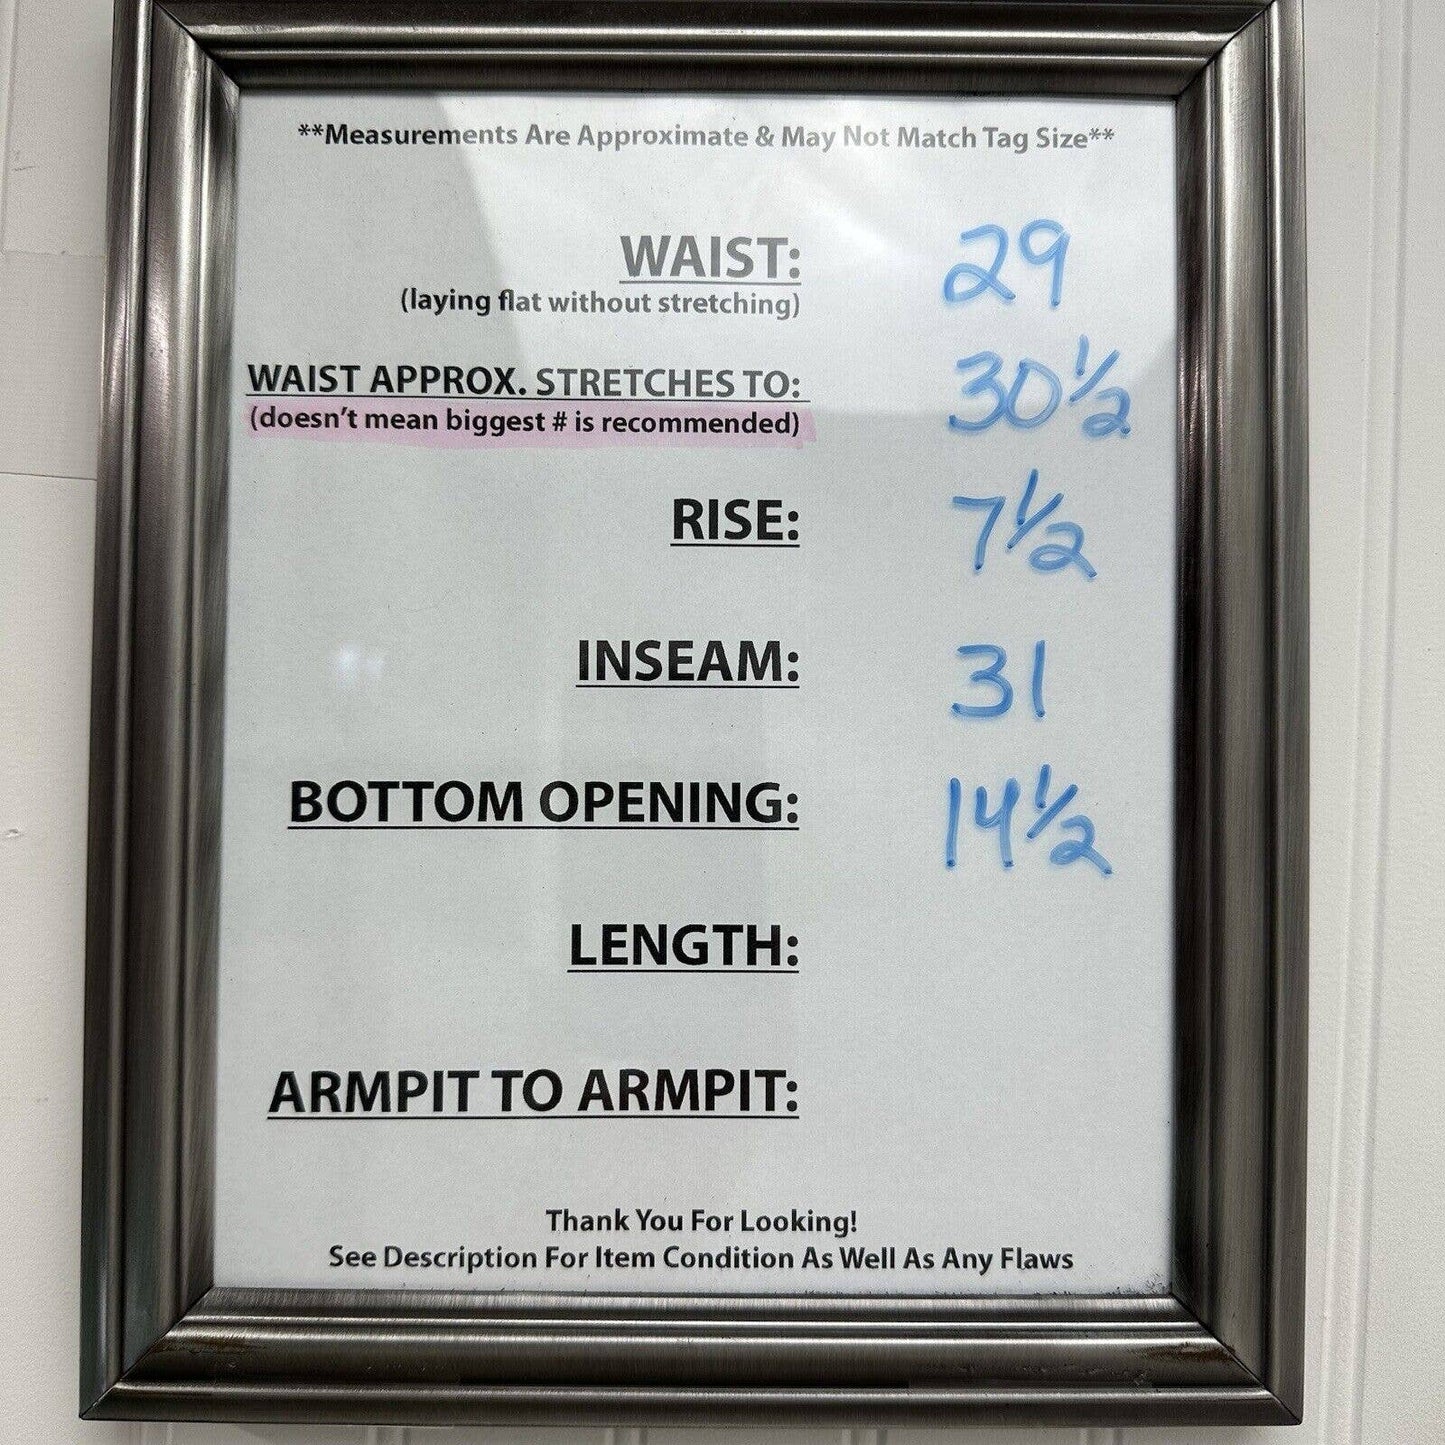 **Measurements Are Approximate & May Not Match Tag Size**
WAIST: 29
(laying flat without stretching)
WAIST APPROX. STRETCHES TO: 30 1/2
(doesn't mean biggest # is recommended)
RISE: 7 1/2
INSEAM: 31
BOTTOM OPENING: 14 1/2
LENGTH:
ARMPIT TO ARMPIT:
Thank You For Looking!
See Description For Item Condition As Well As Any Flaws